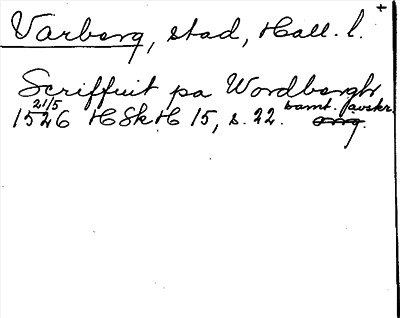 Varberg, stad, Hall. l. +
Scriffuit pa Wordbergh
21/5 1526 HSkH 15, s. 22. samt. avskr.